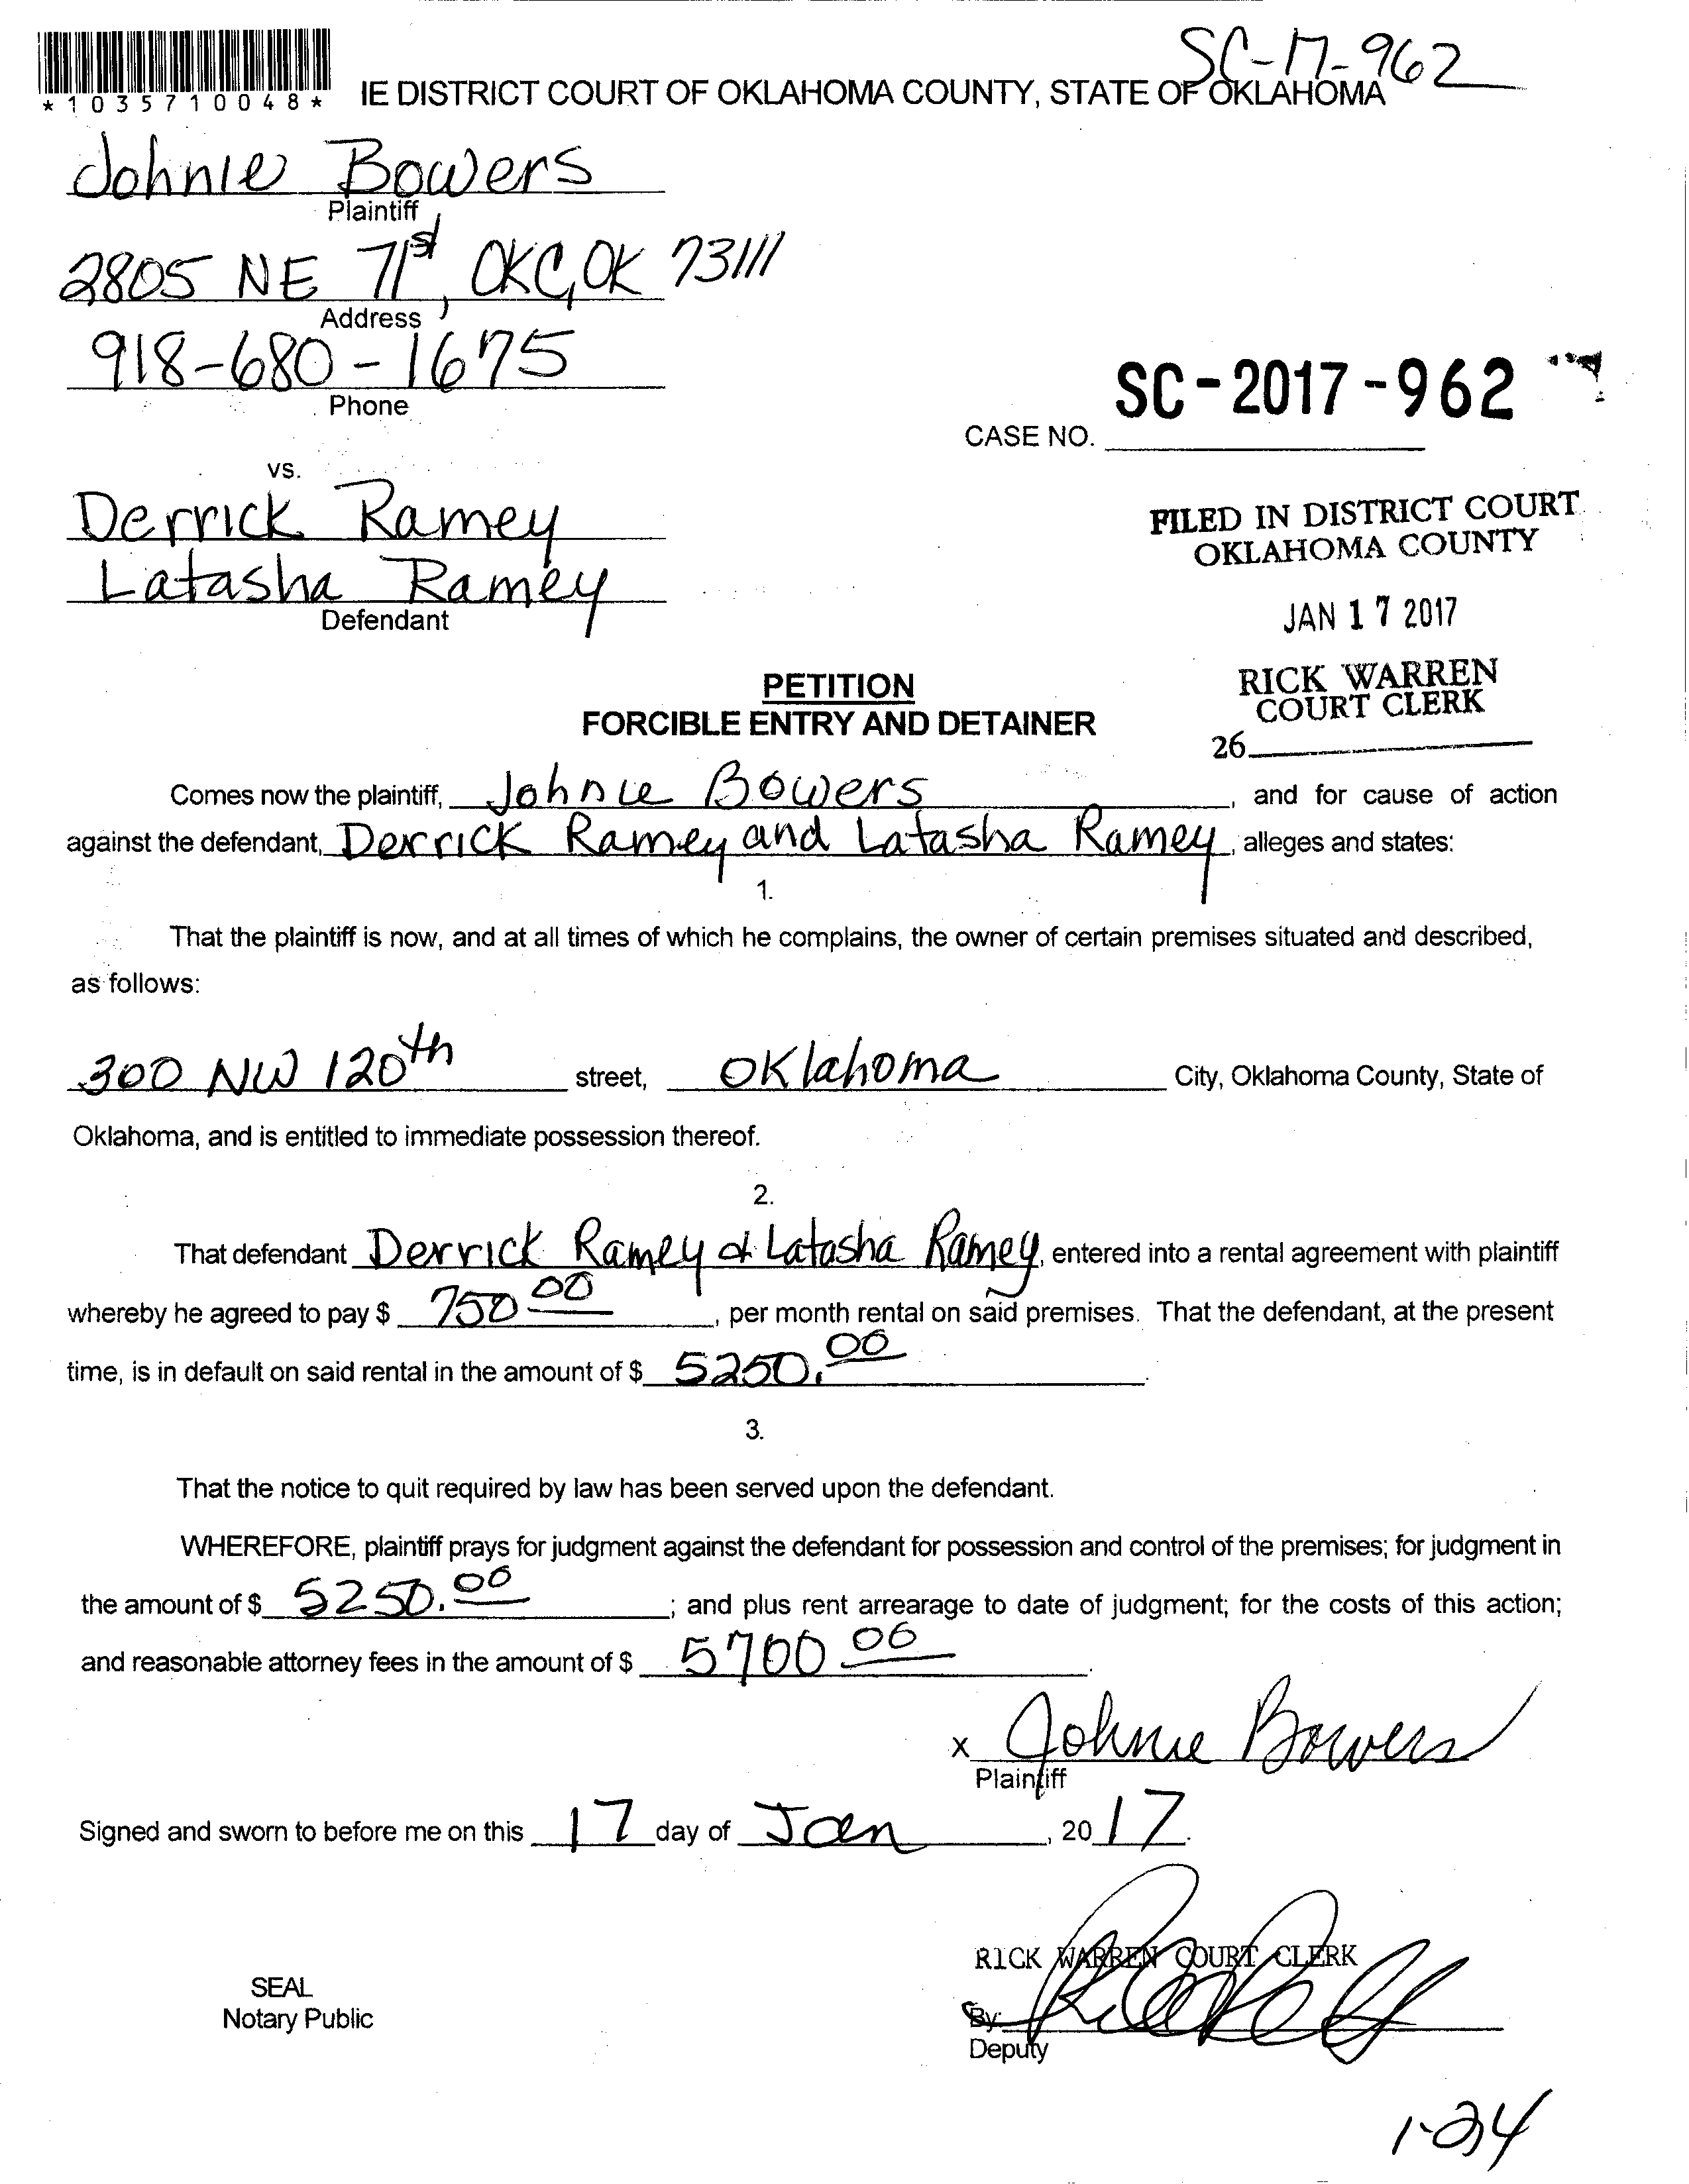 SC-17-962
*1035710048*
IE DISTRICT COURT OF OKLAHOMA COUNTY, STATE OF OKLAHOMA
Johnie Bowers
Plaintiff
2805 NE 71st, OKC, OK 73111
Address
918-680-1675
Phone
SC-2017-962
CASE NO.
vs.
Derrick Ramey
Latasha Ramey
Defendant
FILED IN DISTRICT COURT
OKLAHOMA COUNTY
JAN 17 2017
RICK WARREN
COURT CLERK
26
PETITION
FORCIBLE ENTRY AND DETAINER
Comes now the plaintiff, Johnie Bowers, and for cause of action
against the defendant, Derrick Ramey and Latasha Ramey, alleges and states:
1.
That the plaintiff is now, and at all times of which he complains, the owner of certain premises situated and described,
as follows:
300 NW 120th street, Oklahoma City, Oklahoma County, State of
Oklahoma, and is entitled to immediate possession thereof.
2.
That defendant Derrick Ramey & Latasha Ramey, entered into a rental agreement with plaintiff
whereby he agreed to pay $ 750 00, per month rental on said premises. That the defendant, at the present
time, is in default on said rental in the amount of $ 5250.00.
3.
That the notice to quit required by law has been served upon the defendant.
WHEREFORE, plaintiff prays for judgment against the defendant for possession and control of the premises; for judgment in
the amount of $ 5250.00; and plus rent arrearage to date of judgment; for the costs of this action;
and reasonable attorney fees in the amount of $ 5700 00.
x Johnie Bowers
Plaintiff
Signed and sworn to before me on this 17 day of Jan, 2017.
RICK WARREN COURT CLERK
SEAL
Notary Public
By:
Deputy
1-24